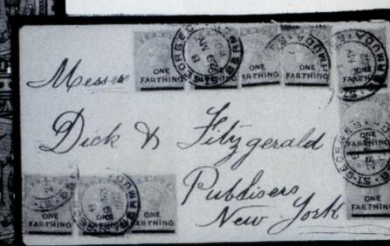 ONE FARTHING
ONE FARTHING
ONE FARTHING
ONE FARTHING
ONE FARTHING
Messrs
Dick & Fitzgerald
Publisers
New York
ONE FARTHING
ONE FARTHING
ONE FARTHING
ONE FARTHING
ONE FARTHING